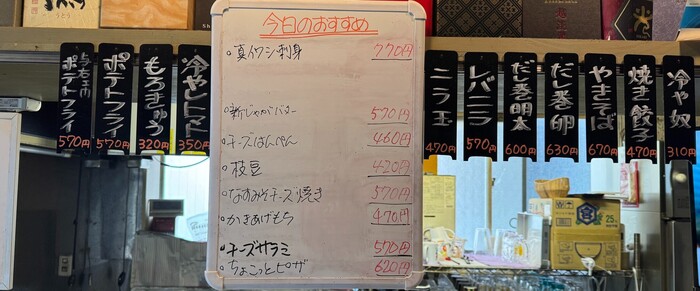 今日のおすすめ
真イワシ刺身 770円
新じゃがバター 570円
チーズはんぺん 460円
枝豆 420円
なすみそチーズ焼き 570円
かきあげもち 470円
チーズサラミ 570円
ちょこっとピザ 620円
ポテトフライ 570円
ポテトフライ 570円
もろきゅう 320円
冷やしトマト 350円
ニラ玉 470円
レバニラ 570円
だし巻明太 600円
だし巻卵 630円
やきそば 670円
焼き餃子 470円
冷や奴 310円
25